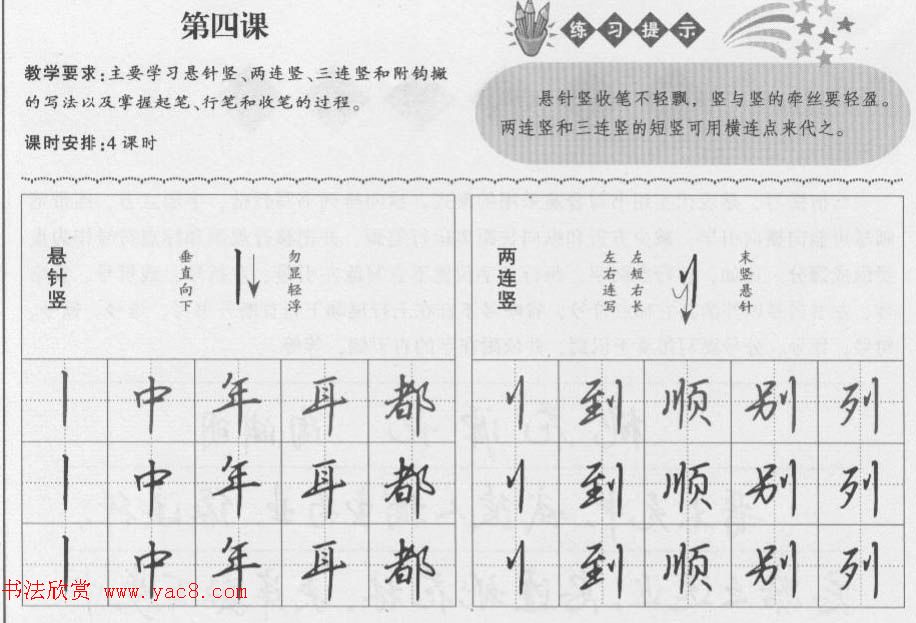 第四课
教学要求:主要学习悬针竖、两连竖、三连竖和附钩撇
的写法以及掌握起笔、行笔和收笔的过程。
课时安排:4课时
练习提示
悬针竖收笔不轻飘，竖与竖的牵丝要轻盈。
两连竖和三连竖的短竖可用横连点来代之。
悬针竖
垂直向下
勿显轻浮
两连竖
左右连写
左短右长
末竖悬针
丨 中 年 耳 都 刂 到 顺 别 列
丨 中 年 耳 都 刂 到 顺 别 列
丨 中 年 耳 都 刂 到 顺 别 列
书法欣赏 www.yac8.com